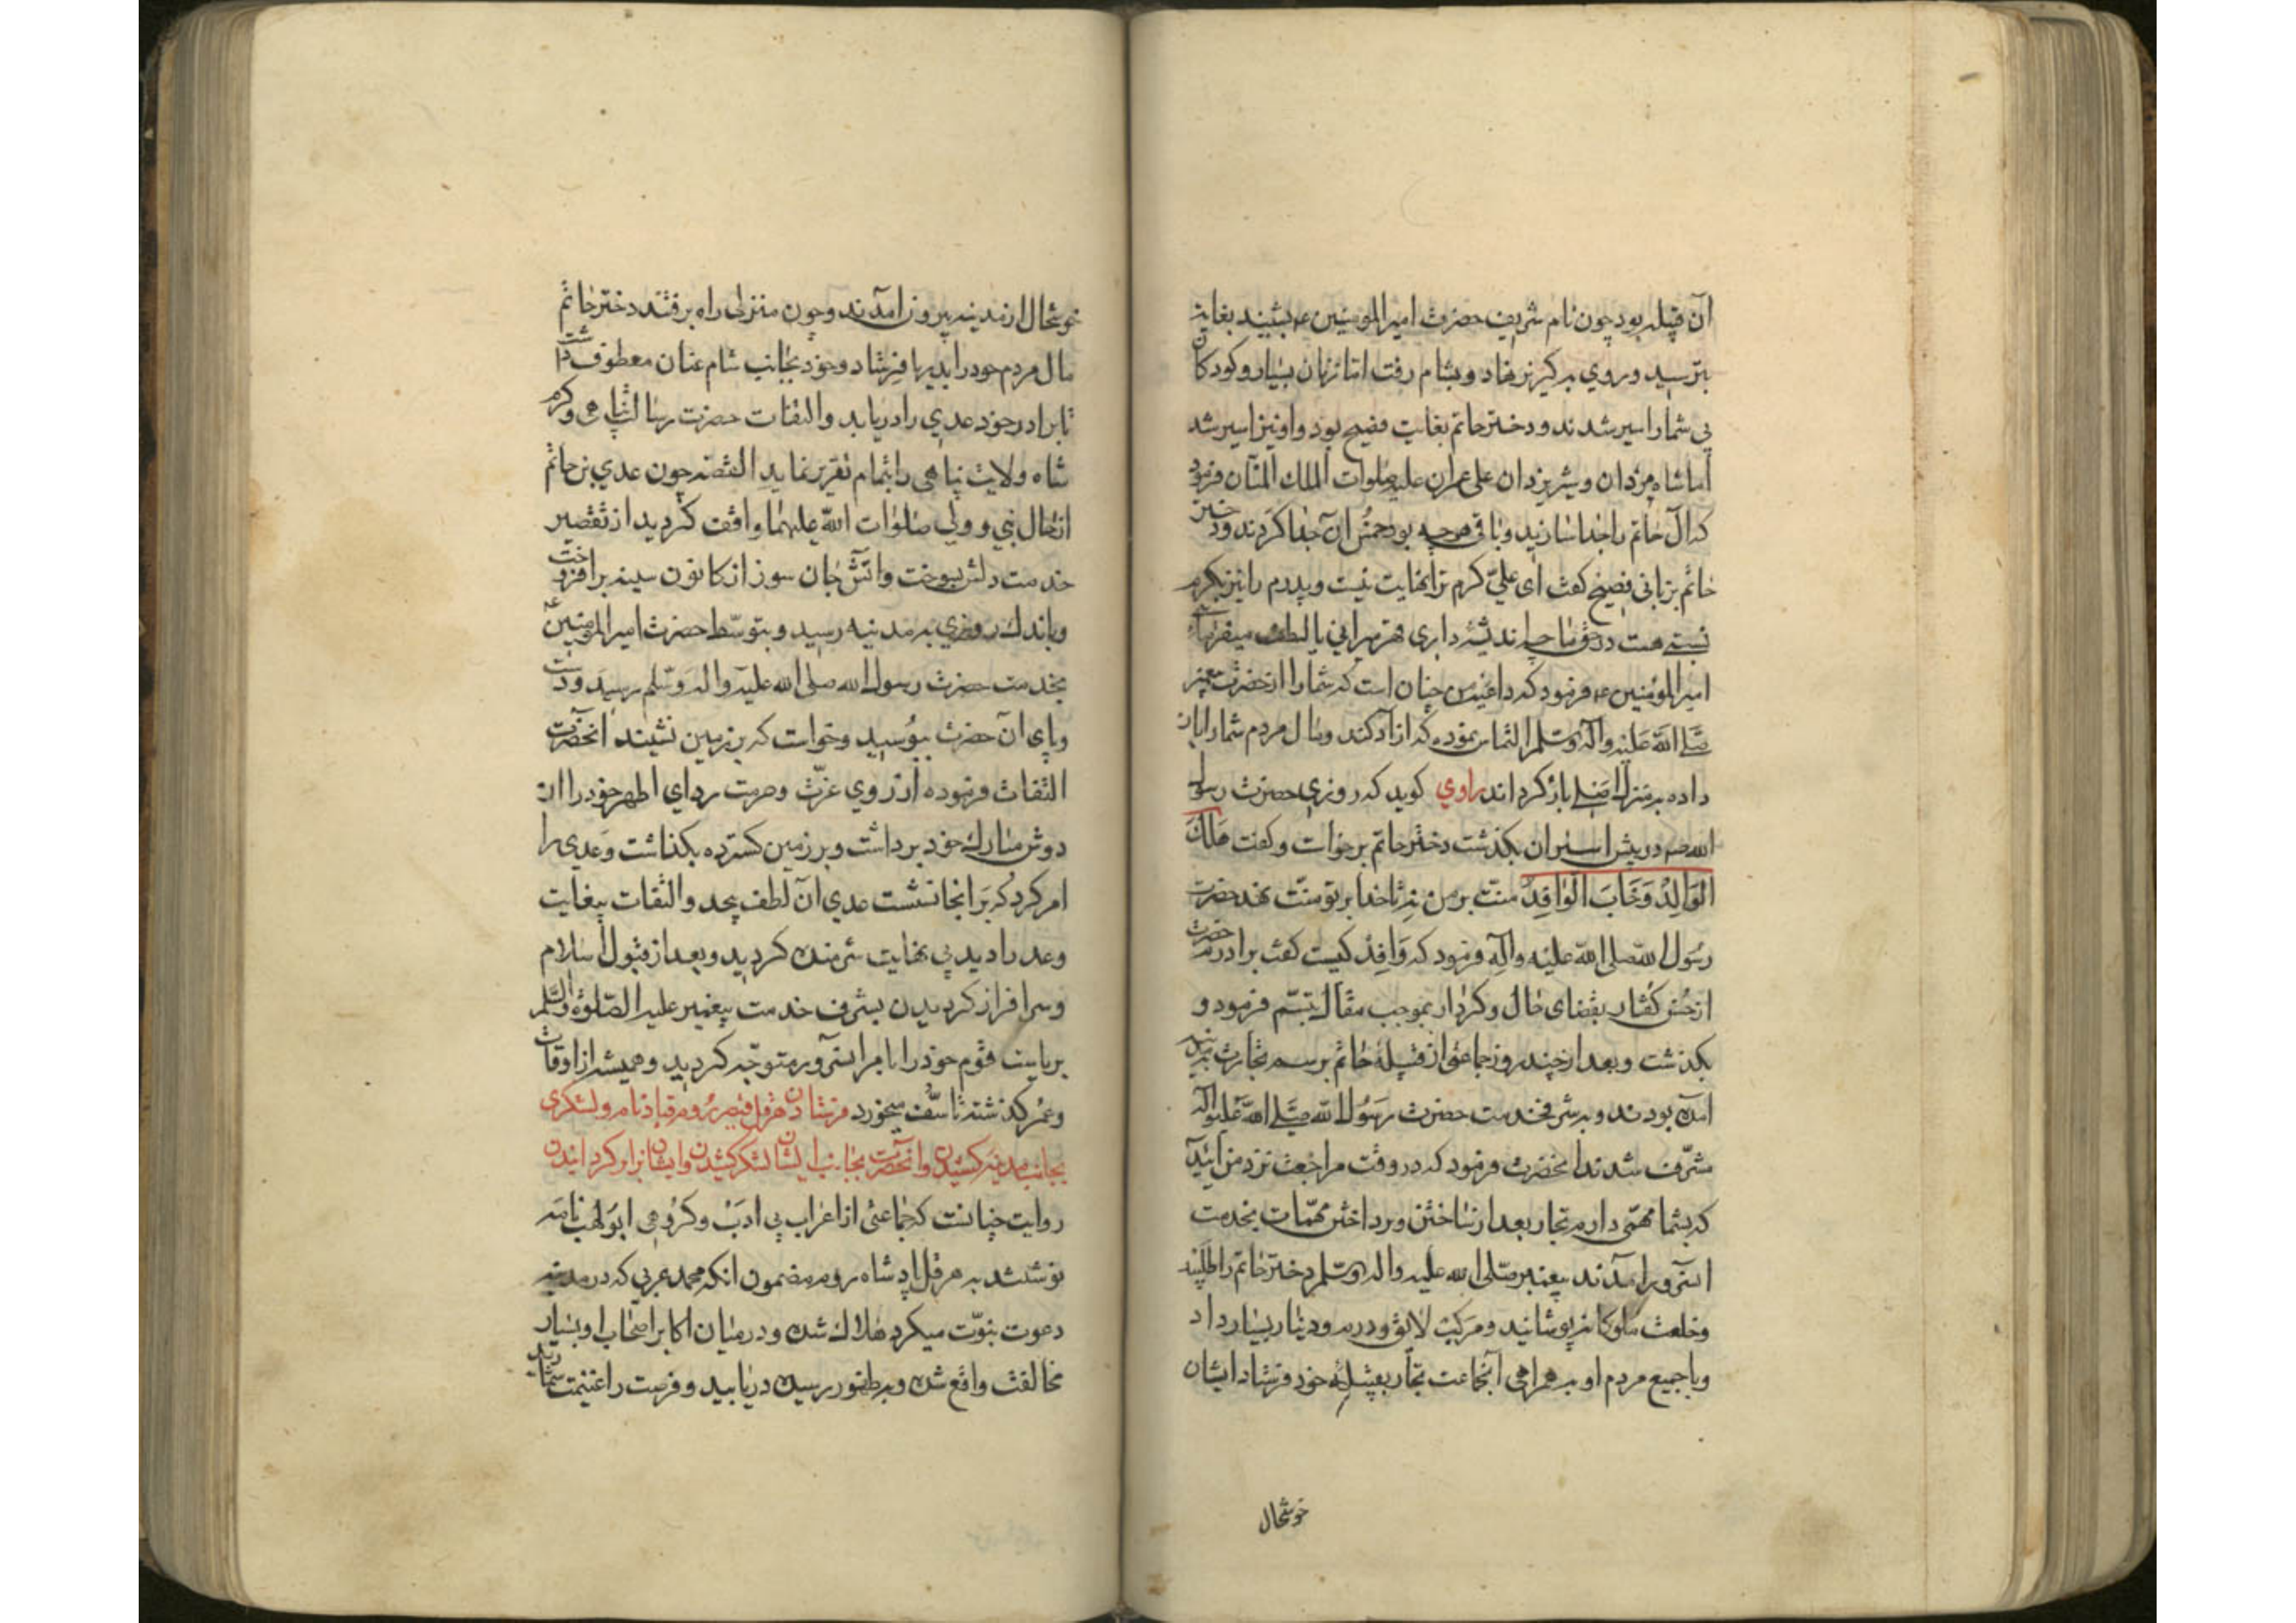 آن قبیله بود چون نام شریف حضرت امیر المومنین ع بشنید بغایت
بترسید و روی به گریز نهاد و بشام رفت اما زنان بسیار و کودکان
بی شمار اسیر شدند و دختر حاتم بغایت فصیح بود و او نیز اسیر شد
اما شاه مردان و شیر یزدان علی عمران علیه صلوات الملک المنان فرمود
که آل حاتم را جدا سازید و باقی هر چه بود خمس آن جدا کردند و دختر
حاتم بزبانی فصیح گفت ای علی کرم ترا نهایت نیست و پدرم را نیز بکرم
نسبتی هست در حق ما چه اندیشه داری
امیر المؤمنین ع فرمود که داعیه من چنان است که شما را از حضرت پیغمبر
صلی الله علیه و آله وسلم التماس نموده که ازاد کند و مال مردم شما را باز
داده به منزل اصلی باز گرداند راوی گوید که روزی حضرت رسول
الله صم در پیش اسیران بگذشت دختر حاتم برخواست و گفت هَلَكَ
الوَالِدُ وَغَابَ الوَافِدُ منت بر من نه تا خدا بر تو منت نهد حضرت
رسول الله صلی الله علیه وآله فرمود که وافد کیست گفت برادرم حضرت
از حسن گفتار بقضای حال و کردار بموجب مقال تبسم فرمود و
بگذشت و بعد از چند روز جماعتی از قبیلهٔ حاتم برسم تجارت بمدینه
آمده بودند و بشرف خدمت حضرت رسول الله صلی الله علیه وآله
مشرف شدند آنحضرت فرمود که در وقت مراجعت نزد من آیید
که بشما مهمی دارم تجار بعد از ساختن و پرداختن مهمات بخدمت
آنسرور آمدند پیغمبر صلی الله علیه واله وسلم دختر حاتم را طلبید
و خلعت ملوکانه پوشانید و مرکب لایق و درم و دینار بسیار داد
و با جمیع مردم او به همراهی آنجماعت تجار بقبیلهٔ خود فرستاد ایشان
خوشحال
خوشحال از مدینه بیرون آمدند و چون منزلی راه برفتند دختر حاتم
مال مردم خود را بدیشان فرستاد و خود بجانب شام عنان معطوف داشت
تا برادر خود عدی را دریابد والتفات حضرت رسالت پناهی و کرم
شاه ولایت پناهی را بتمام تقریر نماید القصه چون عدی بن حاتم
از حال نبی و ولی صلوات الله علیهما واقف گردید از تقصیر
خدمت دلش بسوخت و آتش جان سوز از کانون سینه برافروخت
و باندک روزی به مدینه رسید و بتوسط حضرت امیر المومنین ع
بخدمت حضرت رسول الله صلی الله علیه واله وسلم رسید و دست
و پای آن حضرت ببوسید و خواست که بر زمین نشیند آنحضرت
التفات فرموده از روی عزت و حرمت ردای اطهر خود را از
دوش مبارک خود برداشت و بر زمین گسترده بگذاشت و عدی را
امر کرد که بر انجا نشست عدی آن لطف بیحد و التفات بیغایت
و عد را دید بی نهایت شرمنده گردید و بعد از قبول اسلام
و سرافراز گردیدن بشرف خدمت پیغمبر علیه الصلوة والسلم
بریاست قوم خود را بامر آنسرور متوجه گردید و همیشه از اوقات
و عمر گذشته تاسف میخورد فرستادن هرقل قیصر روم قباد نام و لشکری
بجانب مدینه کشیدن و آنحضرت بجانب ایشان لشکر کشیدن و ایشانرا بر گردانیدن
روایت چنانست که جماعتی از اعراب بی ادب و گروهی ابولهب نامه
نوشتند به هرقل پادشاه روم مضمون انکه محمد عربی که در مدینه
دعوت نبوت میکرد هلاک شده و در میان اکابر اصحاب او بسیار
مخالفت واقع شده و رسیده دریابید و فرصت را غنیمت شمارید